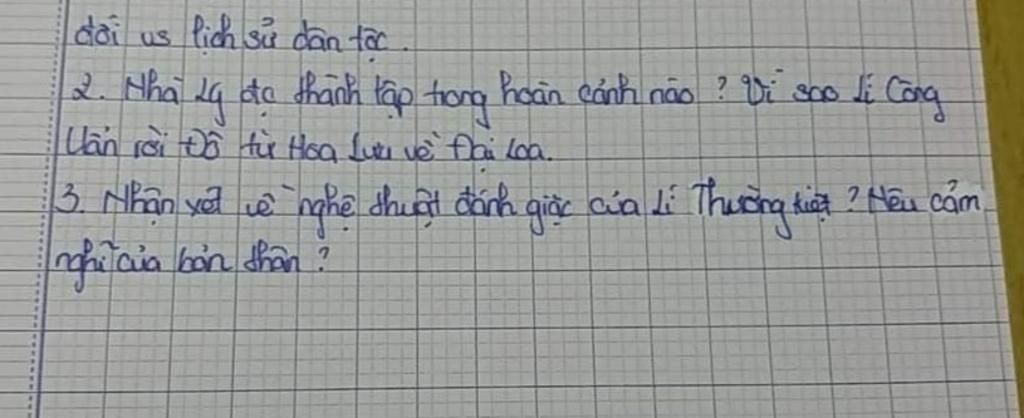 đối vs lịch sử dân tộc.
2. Nhà Lý đc thành lập trong hoàn cảnh nào? Vì sao Lí Công
Uẩn rời Đô từ Hoa Lưu về Đại Loa.
3. Nhận xét về nghệ thuật đánh giặc của Lí Thường Kiệt? Nêu cảm
nghĩ của bản thân?